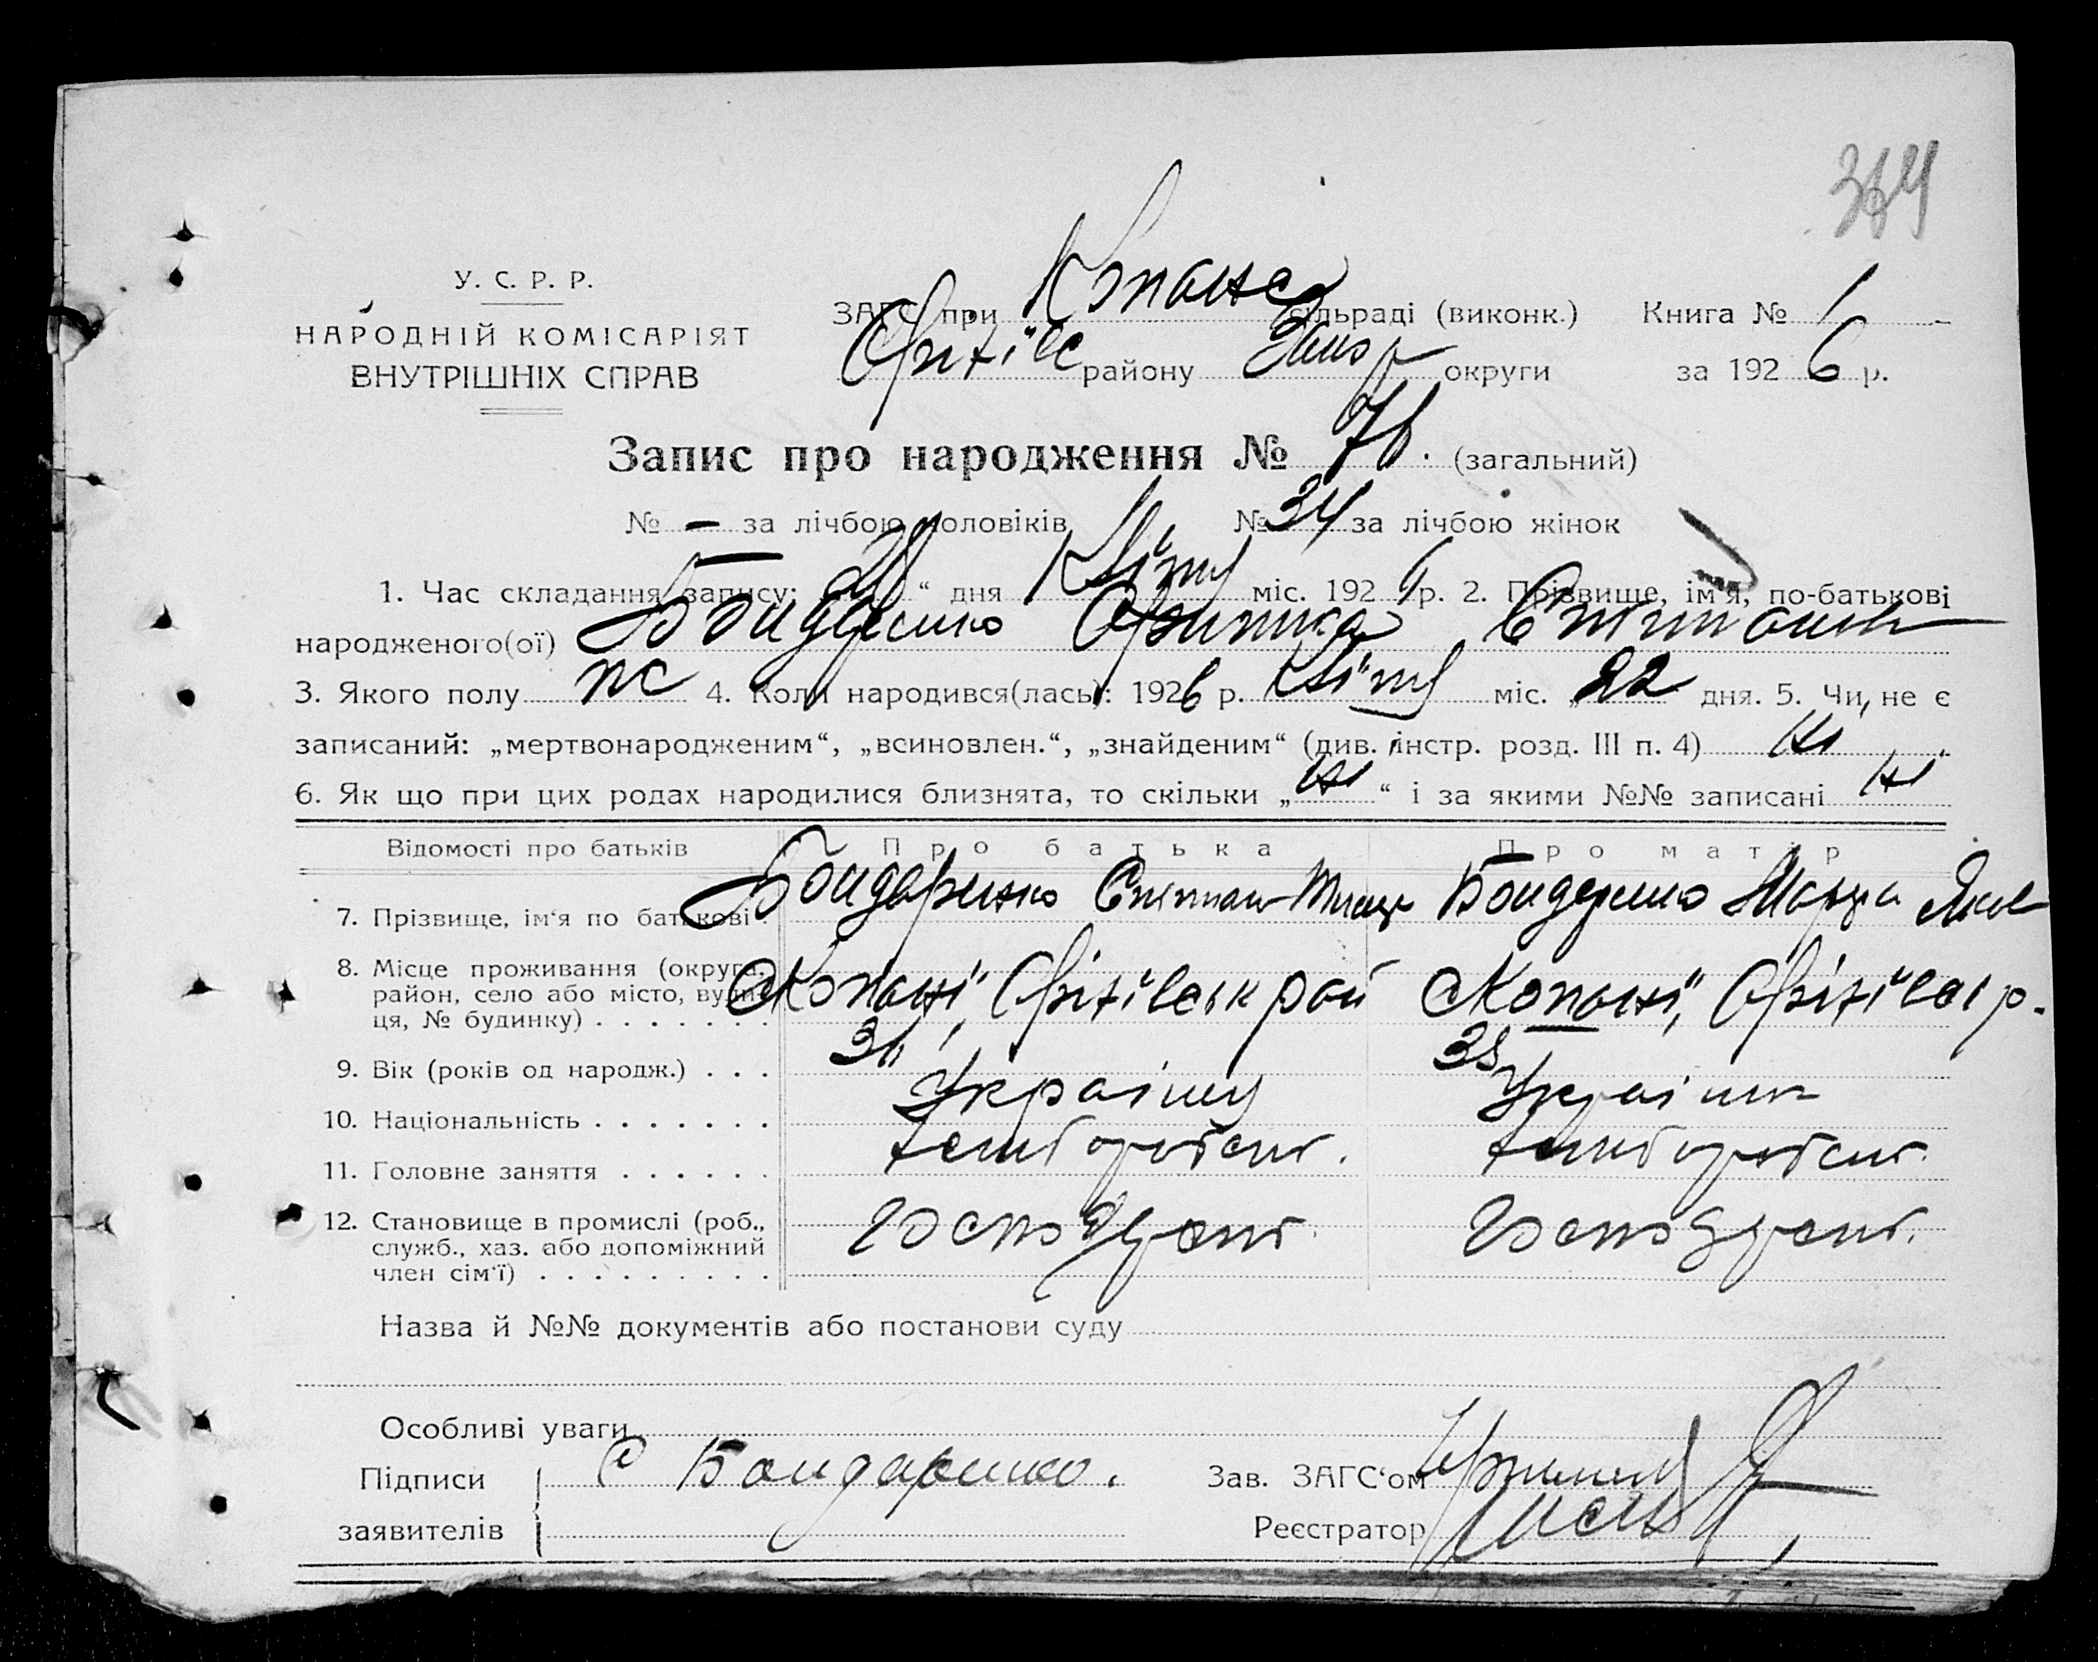 344
У. С. Р. Р.
НАРОДНІЙ КОМІСАРІЯТ
ВНУТРІШНІХ СПРАВ
ЗАГС при Копанс сільраді (виконк.) Книга № 1
Оріхівс району Запор округи за 1926 р.
Запис про народження № 76. (загальний)
№ — за лічбою чоловіків № 34 за лічбою жінок
1. Час складання запису: „ “ дня Квітня міс. 1926 р. 2. Прізвище, ім'я, по-батькові
народженого(ої) Бондаренко Степанов
3. Якого полу жс 4. Коли народився(лась): 1926 р. Квітня міс. „22 дня. 5. Чи не є
записаний: „мертвонародженим“, „всиновлен.“, „знайденим“ (див. інстр. розд. III п. 4) Ні
6. Як що при цих родах народилися близнята, то скільки „Ні“ і за якими №№ записані Ні
Відомості про батьків Про батька Про матір
7. Прізвище, ім'я по батькові. Бондаренко Степан Бондаренко Марфа Яков
8. Місце проживання (округа,
район, село або місто, вули-
ця, № будинку) . . . . . . . с Копані, Оріхівськ рай с Копані, Оріхівсь р.
9. Вік (років од народж.) . . . 36 38
10. Національність . . . . . . . Україн Україн
11. Головне заняття . . . . . . хлібороб хлібороб
12. Становище в промислі (роб.,
служб., хаз. або допоміжний
член сім'ї) . . . . . . . . . господарст. господарст.
Назва й №№ документів або постанови суду
Особливі уваги
Підписи С Бондаренко. Зав. ЗАГС'ом
заявителів Реєстратор